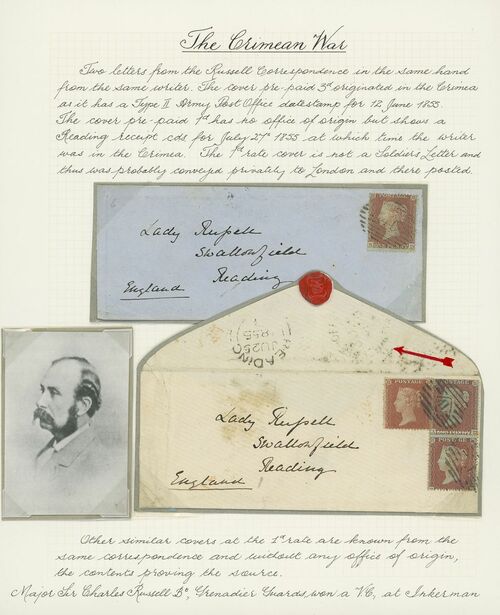 The Crimean War
Two letters from the Russell Correspondence in the same hand
from the same writer. The cover pre-paid 3d originated in the Crimea
as it has a Type II Army Post Office datestamp for 12 June 1855.
The cover pre-paid 1d has no office of origin but shows a
Reading receipt cds for July 27th 1855 at which time the writer
was in the Crimea. The 1d rate cover is not a Soldiers Letter and
thus was probably conveyed privately to London and there posted.
Lady Russell
Swallowfield
Reading
England
READING
JU 25
1855
POSTAGE
POSTAGE
Lady Russell
Swallowfield
Reading
England
Other similar covers at the 1d rate are known from the
same correspondence and without any office of origin,
the contents proving the source.
Major Sir Charles Russell Bt, Grenadier Guards won a VC, at Inkerman